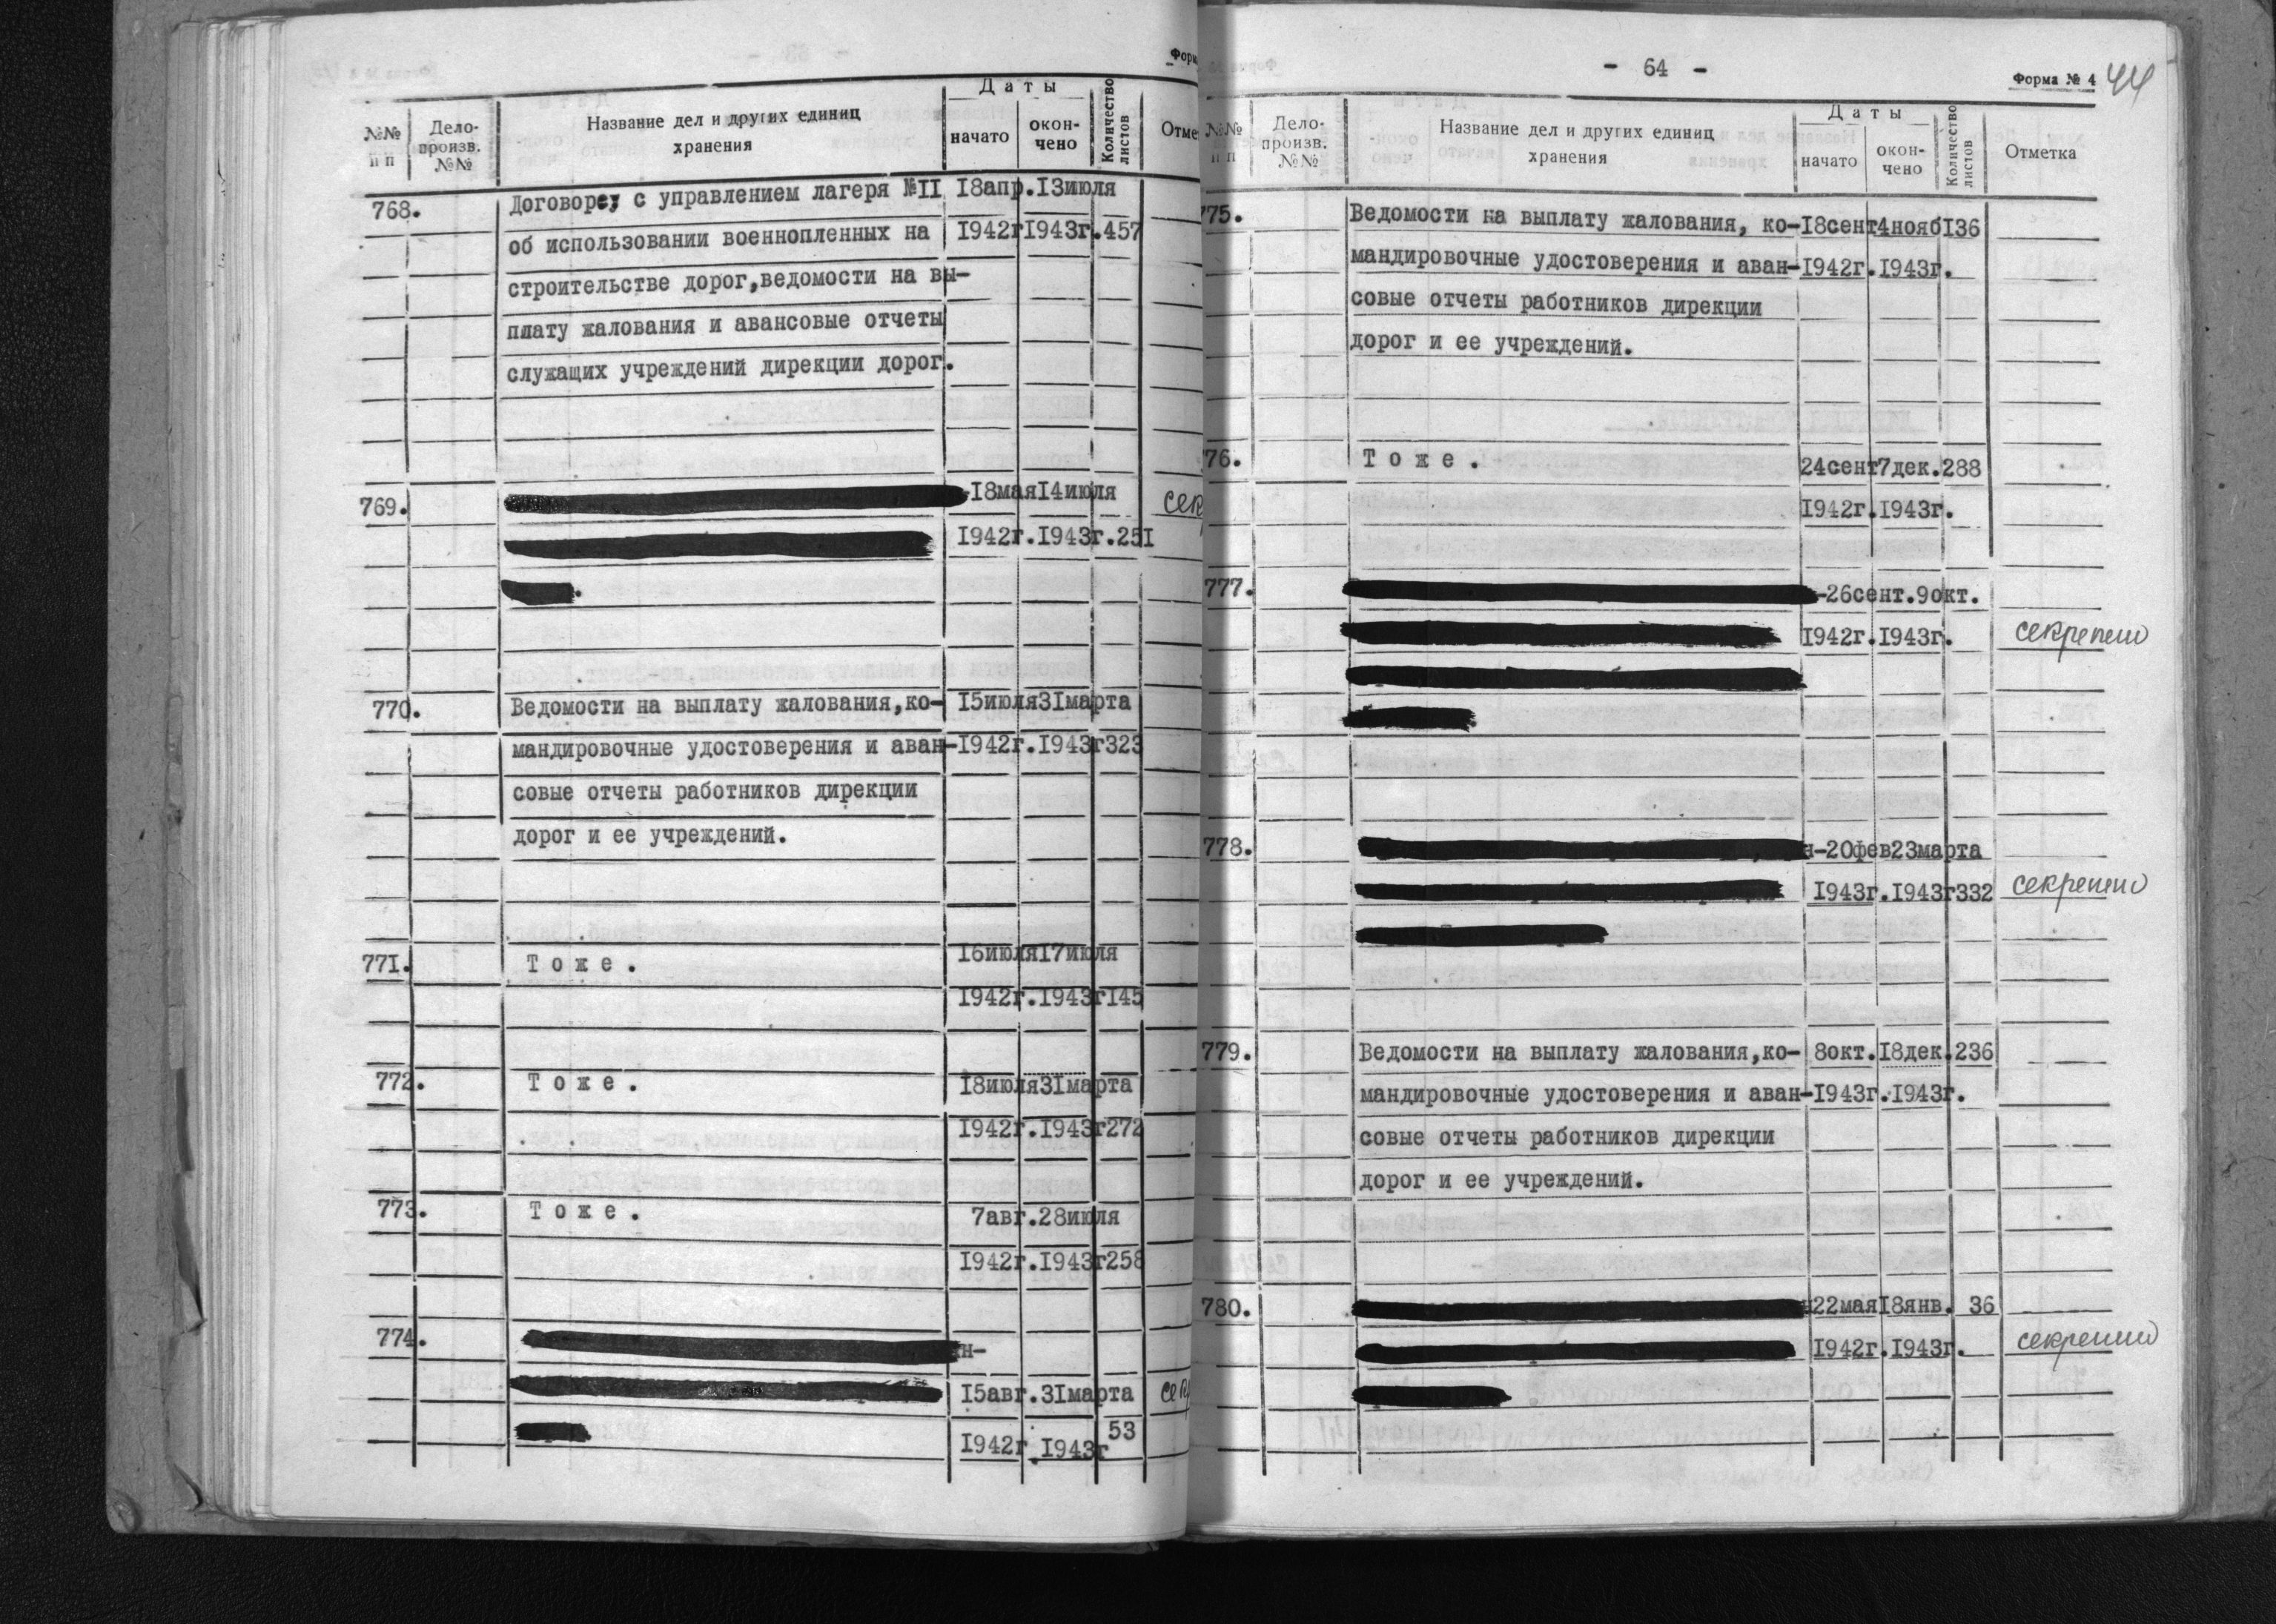 Форм
Д а т ы
№№ п п
Дело-произв. №№
Название дел и других единиц хранения
начато
окон-чено
Количество листов
Отме
768. Договоры с управлением лагеря №II I8апр.I3июля
об использовании военнопленных на I942г I943г.457
строительстве дорог,ведомости на вы-
плату жалования и авансовые отчеты
служащих учреждений дирекции дорог.
769. -I8мая I4июля сек
I942г.I943г.25I
.
770. Ведомости на выплату жалования,ко- I5июля 3Iмарта
мандировочные удостоверения и аван-I942г.I943г 323
совые отчеты работников дирекции
дорог и ее учреждений.
77I. Т о ж е . I6июля I7июля
I942г.I943г I45
772. Т о ж е . I8июля 3Iмарта
I942г.I943г 272
773. Т о ж е . 7авг.28июля
I942г.I943г 258
774. н-
I5авг.3Iмарта сек
53
I942г.I943г
- 64 -
Форма № 4
44
Д а т ы
№№ п п
Дело-произв. №№
Название дел и других единиц хранения
начато
окон-чено
Количество листов
Отметка
775. Ведомости на выплату жалования, ко-I8сент 4нояб I36
мандировочные удостоверения и аван-I942г.I943г.
совые отчеты работников дирекции
дорог и ее учреждений.
76. Т о ж е . 24сент 7дек.288
I942г.I943г.
777. -26сент.9окт.
I942г.I943г. секретно
778. н-20фев 23марта
I943г.I943г 332 секретно
779. Ведомости на выплату жалования,ко- 8окт.I8дек.236
мандировочные удостоверения и аван-I943г.I943г.
совые отчеты работников дирекции
дорог и ее учреждений.
780. 22мая I8янв. 36
I942г.I943г. секретно